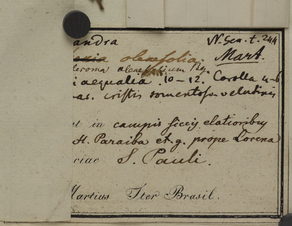 andra
N. Gen. t. 244
oleaefolia
Mart.
aequalia 10–12. Corolla 4–6
as. cristis tomentoso velutinis
et in campis siccis elatioribus
Paraiba et. g. prope Lorena
ciae S. Pauli.
Martius Iter Brasil.